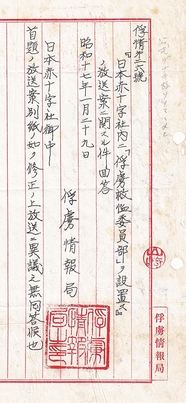 俘情第三六號
「日本赤十字社內ニ「俘虜救恤委員部」ヲ設置ス」
ノ放送案ニ関スル件回答
昭和十七年一月二十九日
俘虜情報局
日本赤十字社御中
首題ノ放送案別紙ノ如ク修正ノ上放送ニ異議之無回答候也
俘虜情報局